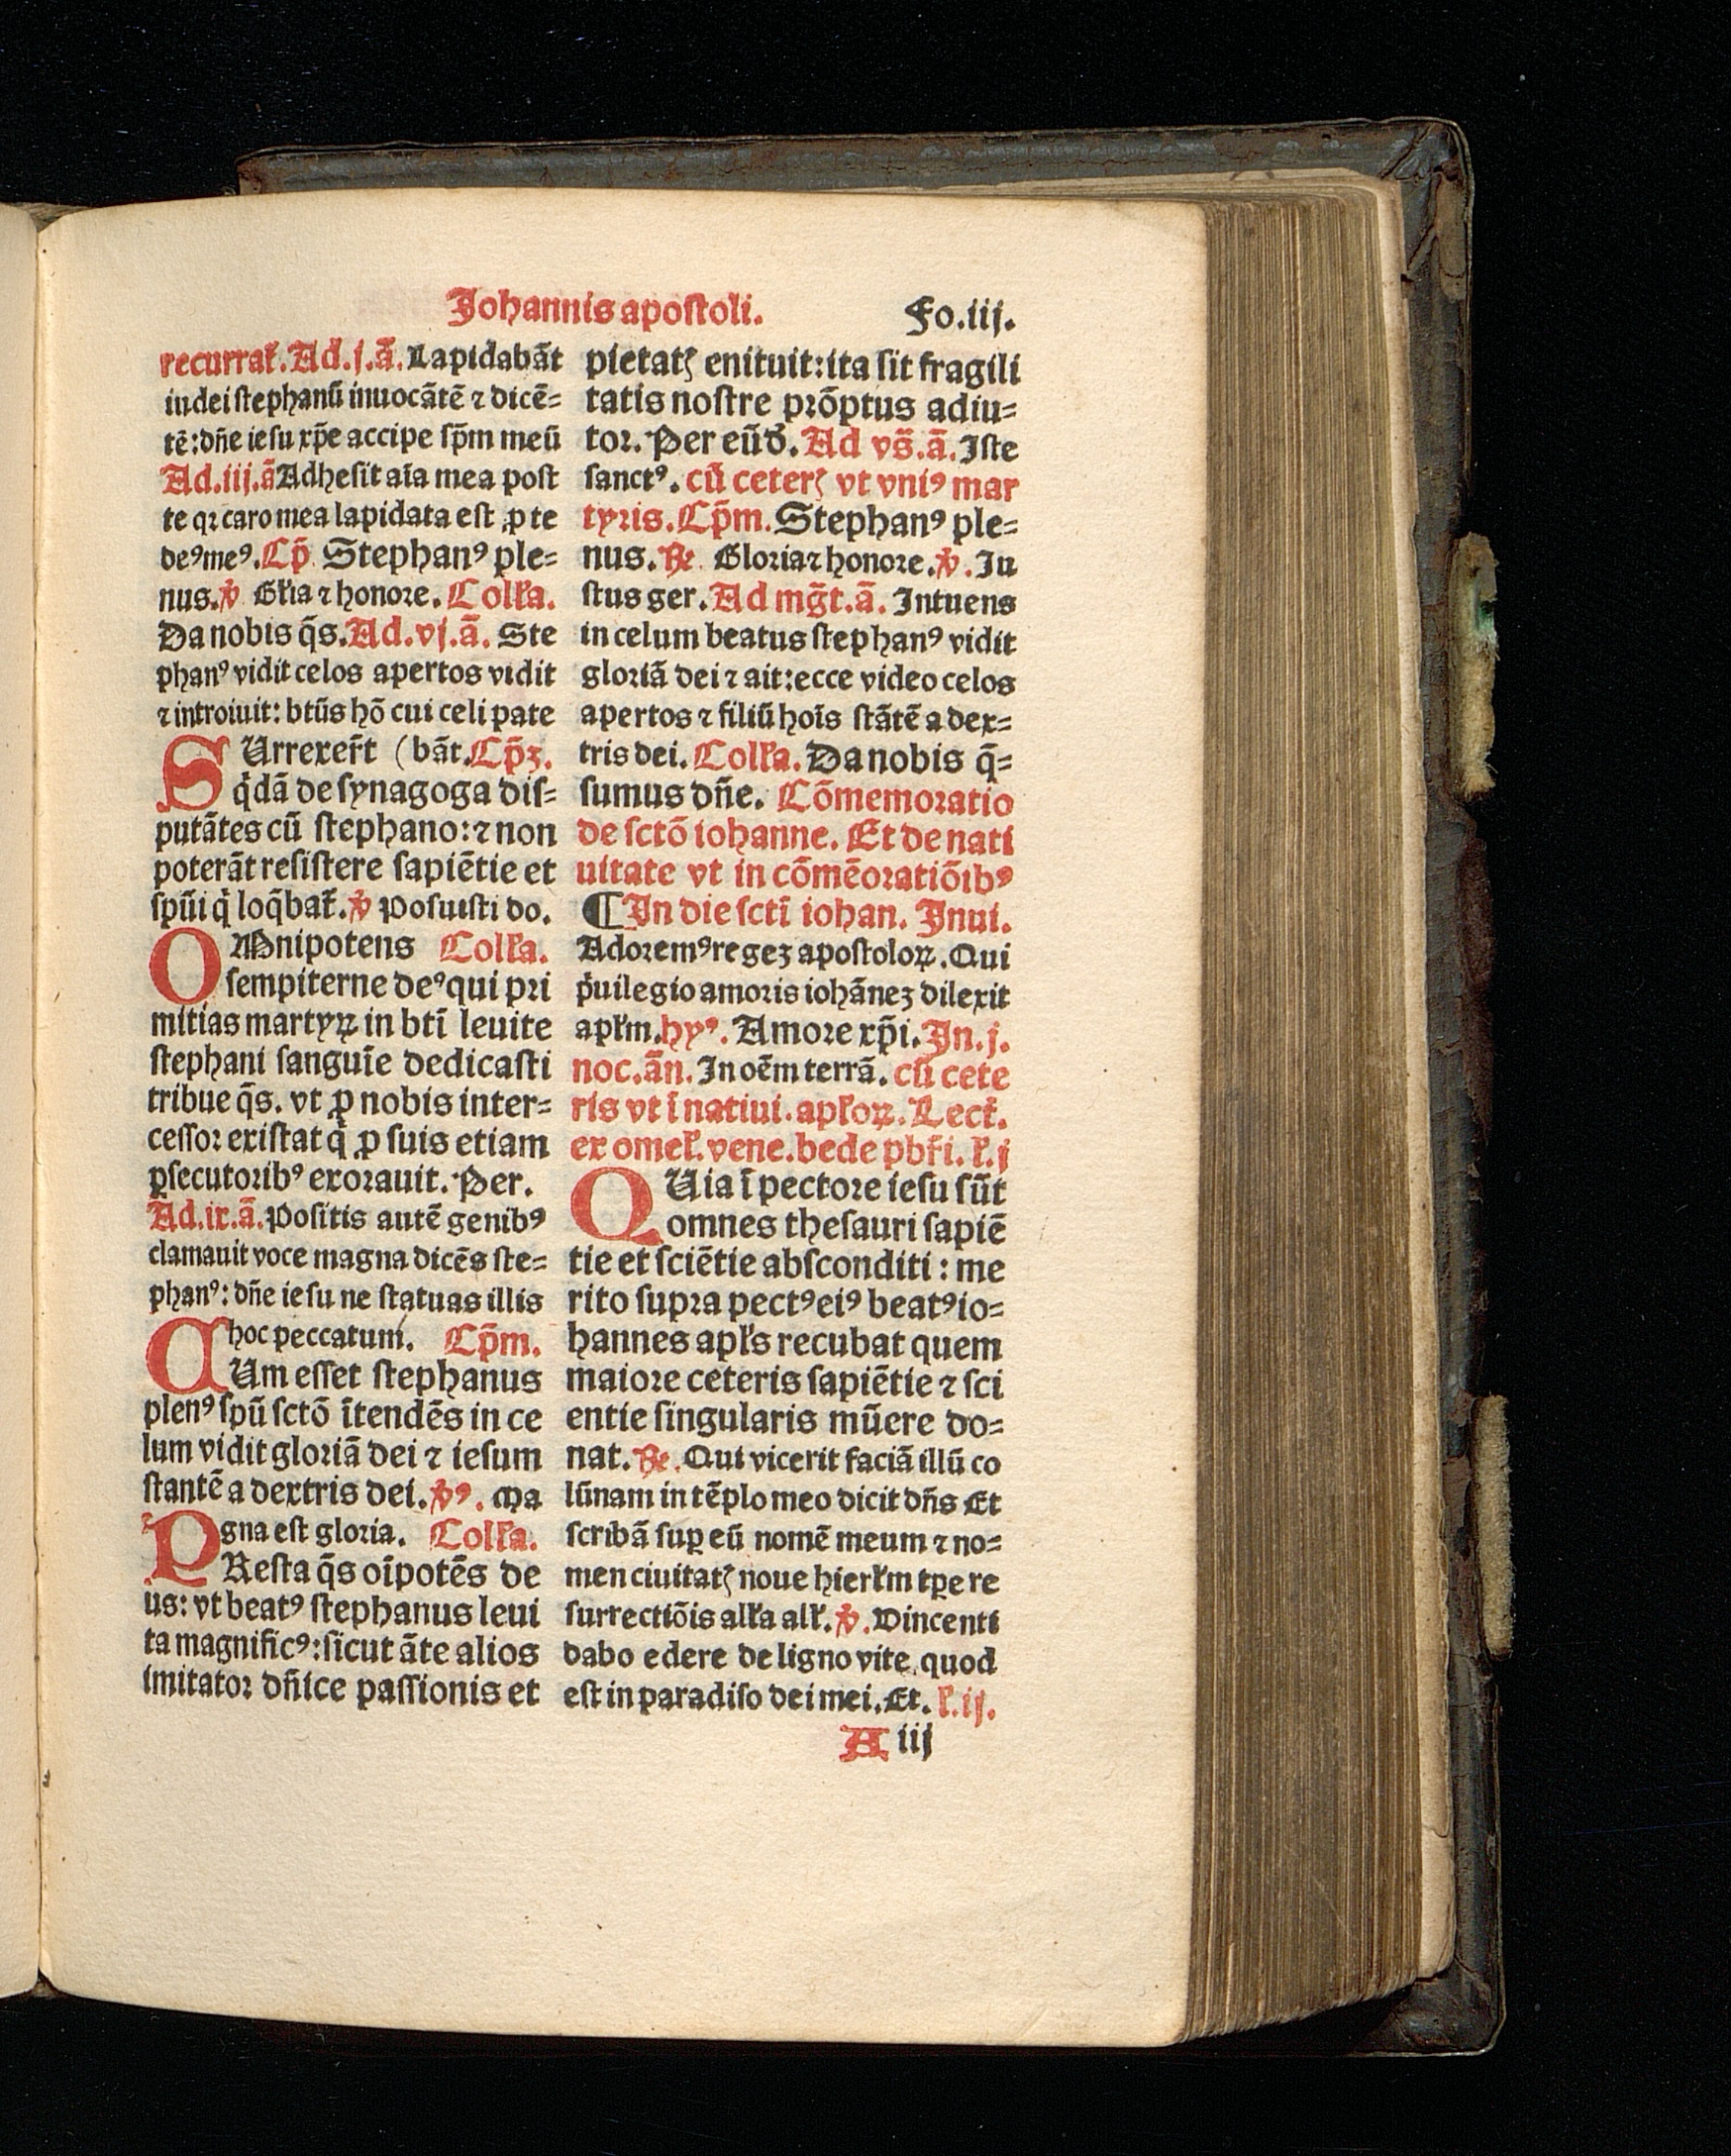 Johannis apostoli.
Fo.iij.
recurrat̃. Ad.j.ā. Lapidabāt
iudei stephanū inuocātē ⁊ dicē=
tē: dñe iesu xp̄e accipe sp̄m meū
Ad.iij.ā Adhesit aīa mea post
te qꝛ caro mea lapidata est ꝓ te
deꝰ meꝰ. Cp̄. Stephanꝰ ple=
nus. ꝟ Gl̃ia ⁊ honore. Coll̃a.
Da nobis q̄s. Ad.vj.ā. Ste
phanꝰ vidit celos apertos vidit
⁊ introiuit: btūs hō cui celi pate
SUrrexer̃t (bāt. Cp̄ꝫ.
q̇dā de synagoga dis=
putātes cū stephano: ⁊ non
poterāt resistere sapiētie et
spūi q̇ loq̄bat̃. ꝟ Posuisti do.
OMnipotens Coll̃a.
sempiterne deꝰ qui pri
mitias martyꝝ in btī leuite
stephani sanguīe dedicasti
tribue q̄s. vt ꝓ nobis inter=
cessor existat q̇ ꝓ suis etiam
ꝑsecutoribꝰ exorauit. Per.
Ad.ix.ā. Positis autē genibꝰ
clamauit voce magna dicēs ste=
phanꝰ: dñe iesu ne statuas illis
hoc peccatum. Cp̄m.
CUm esset stephanus
plenꝰ spū sctō ītendēs in ce
lum vidit gloriā dei ⁊ iesum
stantē a dextris dei. ꝟꝰ. Ma
gna est gloria. Coll̃a.
PResta q̄s oīpotēs de
us: vt beatꝰ stephanus leui
ta magnificꝰ: sicut āte alios
imitator dñice passionis et
pietatꝭ enituit: ita sit fragili
tatis nostre prōptus adiu=
tor. Per eūd̄. Ad vs̄.ā. Iste
sanctꝰ. cū ceterꝭ vt vniꝰ mar
tyris. Cp̄m. Stephanꝰ ple=
nus. ℞. Gloria ⁊ honore. ꝟ. Iu
stus ger. Ad mḡt.ā. Intuens
in celum beatus stephanꝰ vidit
gloriā dei ⁊ ait: ecce video celos
apertos ⁊ filiū hoīs stātē a dex=
tris dei. Coll̃a. Da nobis q̄=
sumus dñe. Cōmemoratio
de sctō iohanne. Et de nati
uitate vt in cōmēoratiōibꝰ
¶ In die sctī iohan. Inui.
Adoremꝰ regeꝫ apostoloꝝ. Qui
p̓uilegio amoris iohāneꝫ dilexit
apl̃m. hyꝰ. Amore xp̄i. In.j.
noc.ān. In oēm terrā. cū cete
ris vt ī natiui. apl̃oꝝ. Lect̃.
ex omel̃. vene. bede pbr̃i. l̃.j
QUia ī pectore iesu sūt
omnes thesauri sapiē
tie et sciētie absconditi: me
rito supra pectꝰ eiꝰ beatꝰ io=
hannes apl̃s recubat quem
maiore ceteris sapiētie ⁊ sci
entie singularis mūere do=
nat. ℞. Qui vicerit faciā illū co
lūnam in tēplo meo dicit dñs Et
scribā suꝑ eū nomē meum ⁊ no=
men ciuitatꝭ noue hierl̃m tꝑe re
surrectiōis all̃a all̃. ꝟ. Vincenti
dabo edere de ligno vite, quod
est in paradiso dei mei. Et. l̃.ij.
A iij